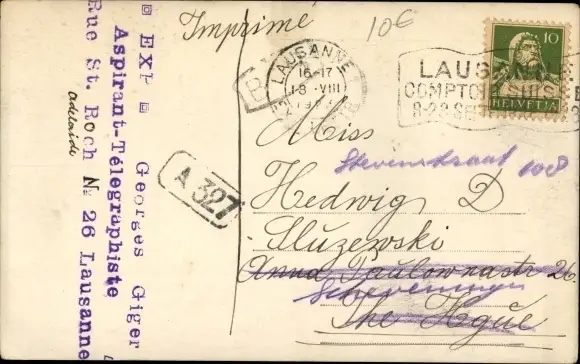 Imprimé
10€
¤ EXP ¤ Georges Giger
Aspirant-Télégraphiste
Rue St. Roch № 26 Lausanne
Adelaide
B
LAUSANNE
16-17
18 VIII
10
HELVETIA
LAUSANNE
COMPTOIR SUISSE
A 327
Miss
Stevinstraat 108
Hedwig D
Sluzewski
Anna Paulownastr 26
Scheveningen
The Hague